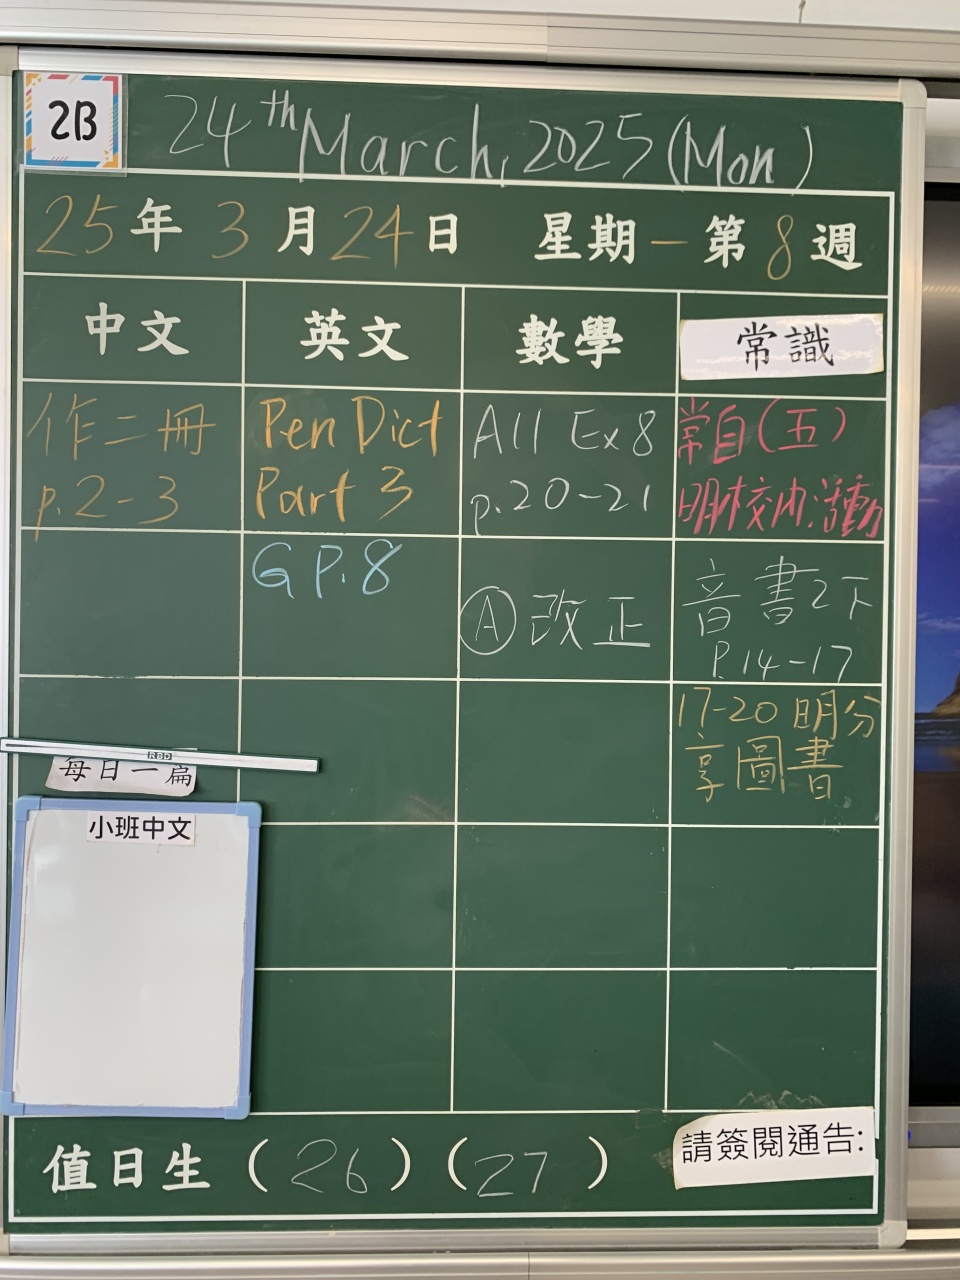 2B
24th March, 2025 (Mon)
25年3月24日 星期一 第8週
中文 英文 數學 常識
作二冊
p.2-3
Pen Dict
Part 3
All Ex 8
p.20-21
常自(五)
明校內活動
G P.8
Ⓐ改正
音書2下
P.14-17
17-20明分
享圖書
RBD
每日一扁
小班中文
值日生 (26) (27)
請簽閱通告: